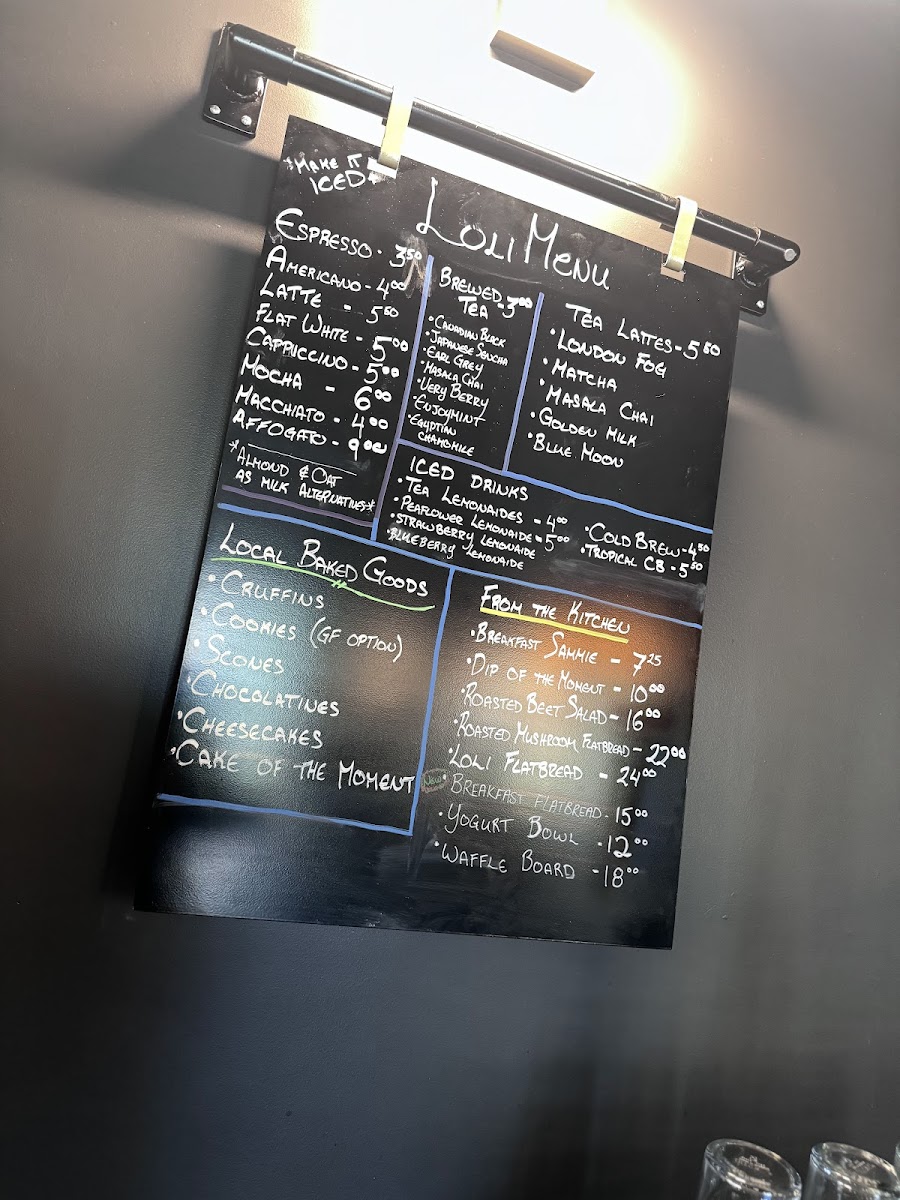 *MAKE IT
ICED*
LOLI MENU
ESPRESSO - 3.50
AMERICANO - 4.00
LATTE - 5.50
FLAT WHITE - 5.00
CAPPUCCINO - 5.00
MOCHA - 6.00
MACCHIATO - 4.00
AFFOGATO - 9.00
*ALMOND & OAT
AS MILK ALTERNATIVES*
BREWED
TEA - 3.00
• CANADIAN BLACK
• JAPANESE SENCHA
• EARL GREY
• MASALA CHAI
• VERY BERRY
• ENJOYMINT
• EGYPTIAN
CHAMOMILE
TEA LATTES - 5.50
• LONDON FOG
• MATCHA
• MASALA CHAI
• GOLDEN MILK
• BLUE MOON
ICED DRINKS
• TEA LEMONAIDES - 4.00
• PEAFLOWER LEMONAIDE - 5.00
• STRAWBERRY LEMONAIDE
• BLUEBERRY LEMONAIDE
• COLD BREW - 4.50
• TROPICAL CB - 5.50
LOCAL BAKED GOODS
• CRUFFINS
• COOKIES (GF OPTION)
• SCONES
• CHOCOLATINES
• CHEESECAKES
• CAKE OF THE MOMENT
FROM THE KITCHEN
• BREAKFAST SAMMIE - 7.25
• DIP OF THE MOMENT - 10.00
• ROASTED BEET SALAD - 16.00
• ROASTED MUSHROOM FLATBREAD - 22.00
• LOLI FLATBREAD - 24.00
New BREAKFAST FLATBREAD - 15.00
• YOGURT BOWL - 12.00
• WAFFLE BOARD - 18.00